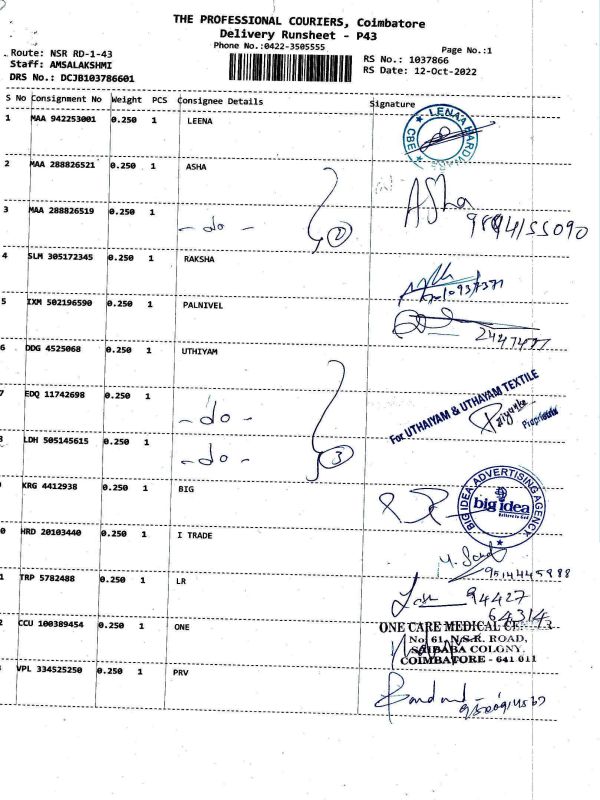 THE PROFESSIONAL COURIERS, Coimbatore
Delivery Runsheet - P43
Phone No.:0422-3505555
Page No.:1
Route: NSR RD-1-43
RS No.: 1037866
Staff: AMSALAKSHMI
RS Date: 12-Oct-2022
DRS No.: DCJB103786601
S No Consignment No Weight PCS Consignee Details Signature
1 MAA 942253001 0.250 1 LEENA
LENAA HARDWARE CBE
2 MAA 288826521 0.250 1 ASHA
Asha
3 MAA 288826519 0.250 1 - do - 2
4 SLM 305172345 0.250 1 RAKSHA
5 IXM 502196590 0.250 1 PALNIVEL
6 DDG 4525068 0.250 1 UTHIYAM
7 EDQ 11742698 0.250 1 - do -
For UTHAIYAM & UTHAYAM TEXTILE
Priyanka
Proprietrix
LDH 505145615 0.250 1 - do - 3
KRG 4412938 0.250 1 BIG
BIG IDEA ADVERTISING AGENCY
big idea
0 HRD 20103440 0.250 1 I TRADE
1 TRP 5782488 0.250 1 LR
94427
64314
2 CCU 100389454 0.250 1 ONE
ONE CARE MEDICAL
No. 61, N.S.R. ROAD,
SAIBABA COLONY,
COIMBATORE - 641 011
VPL 334525250 0.250 1 PRV